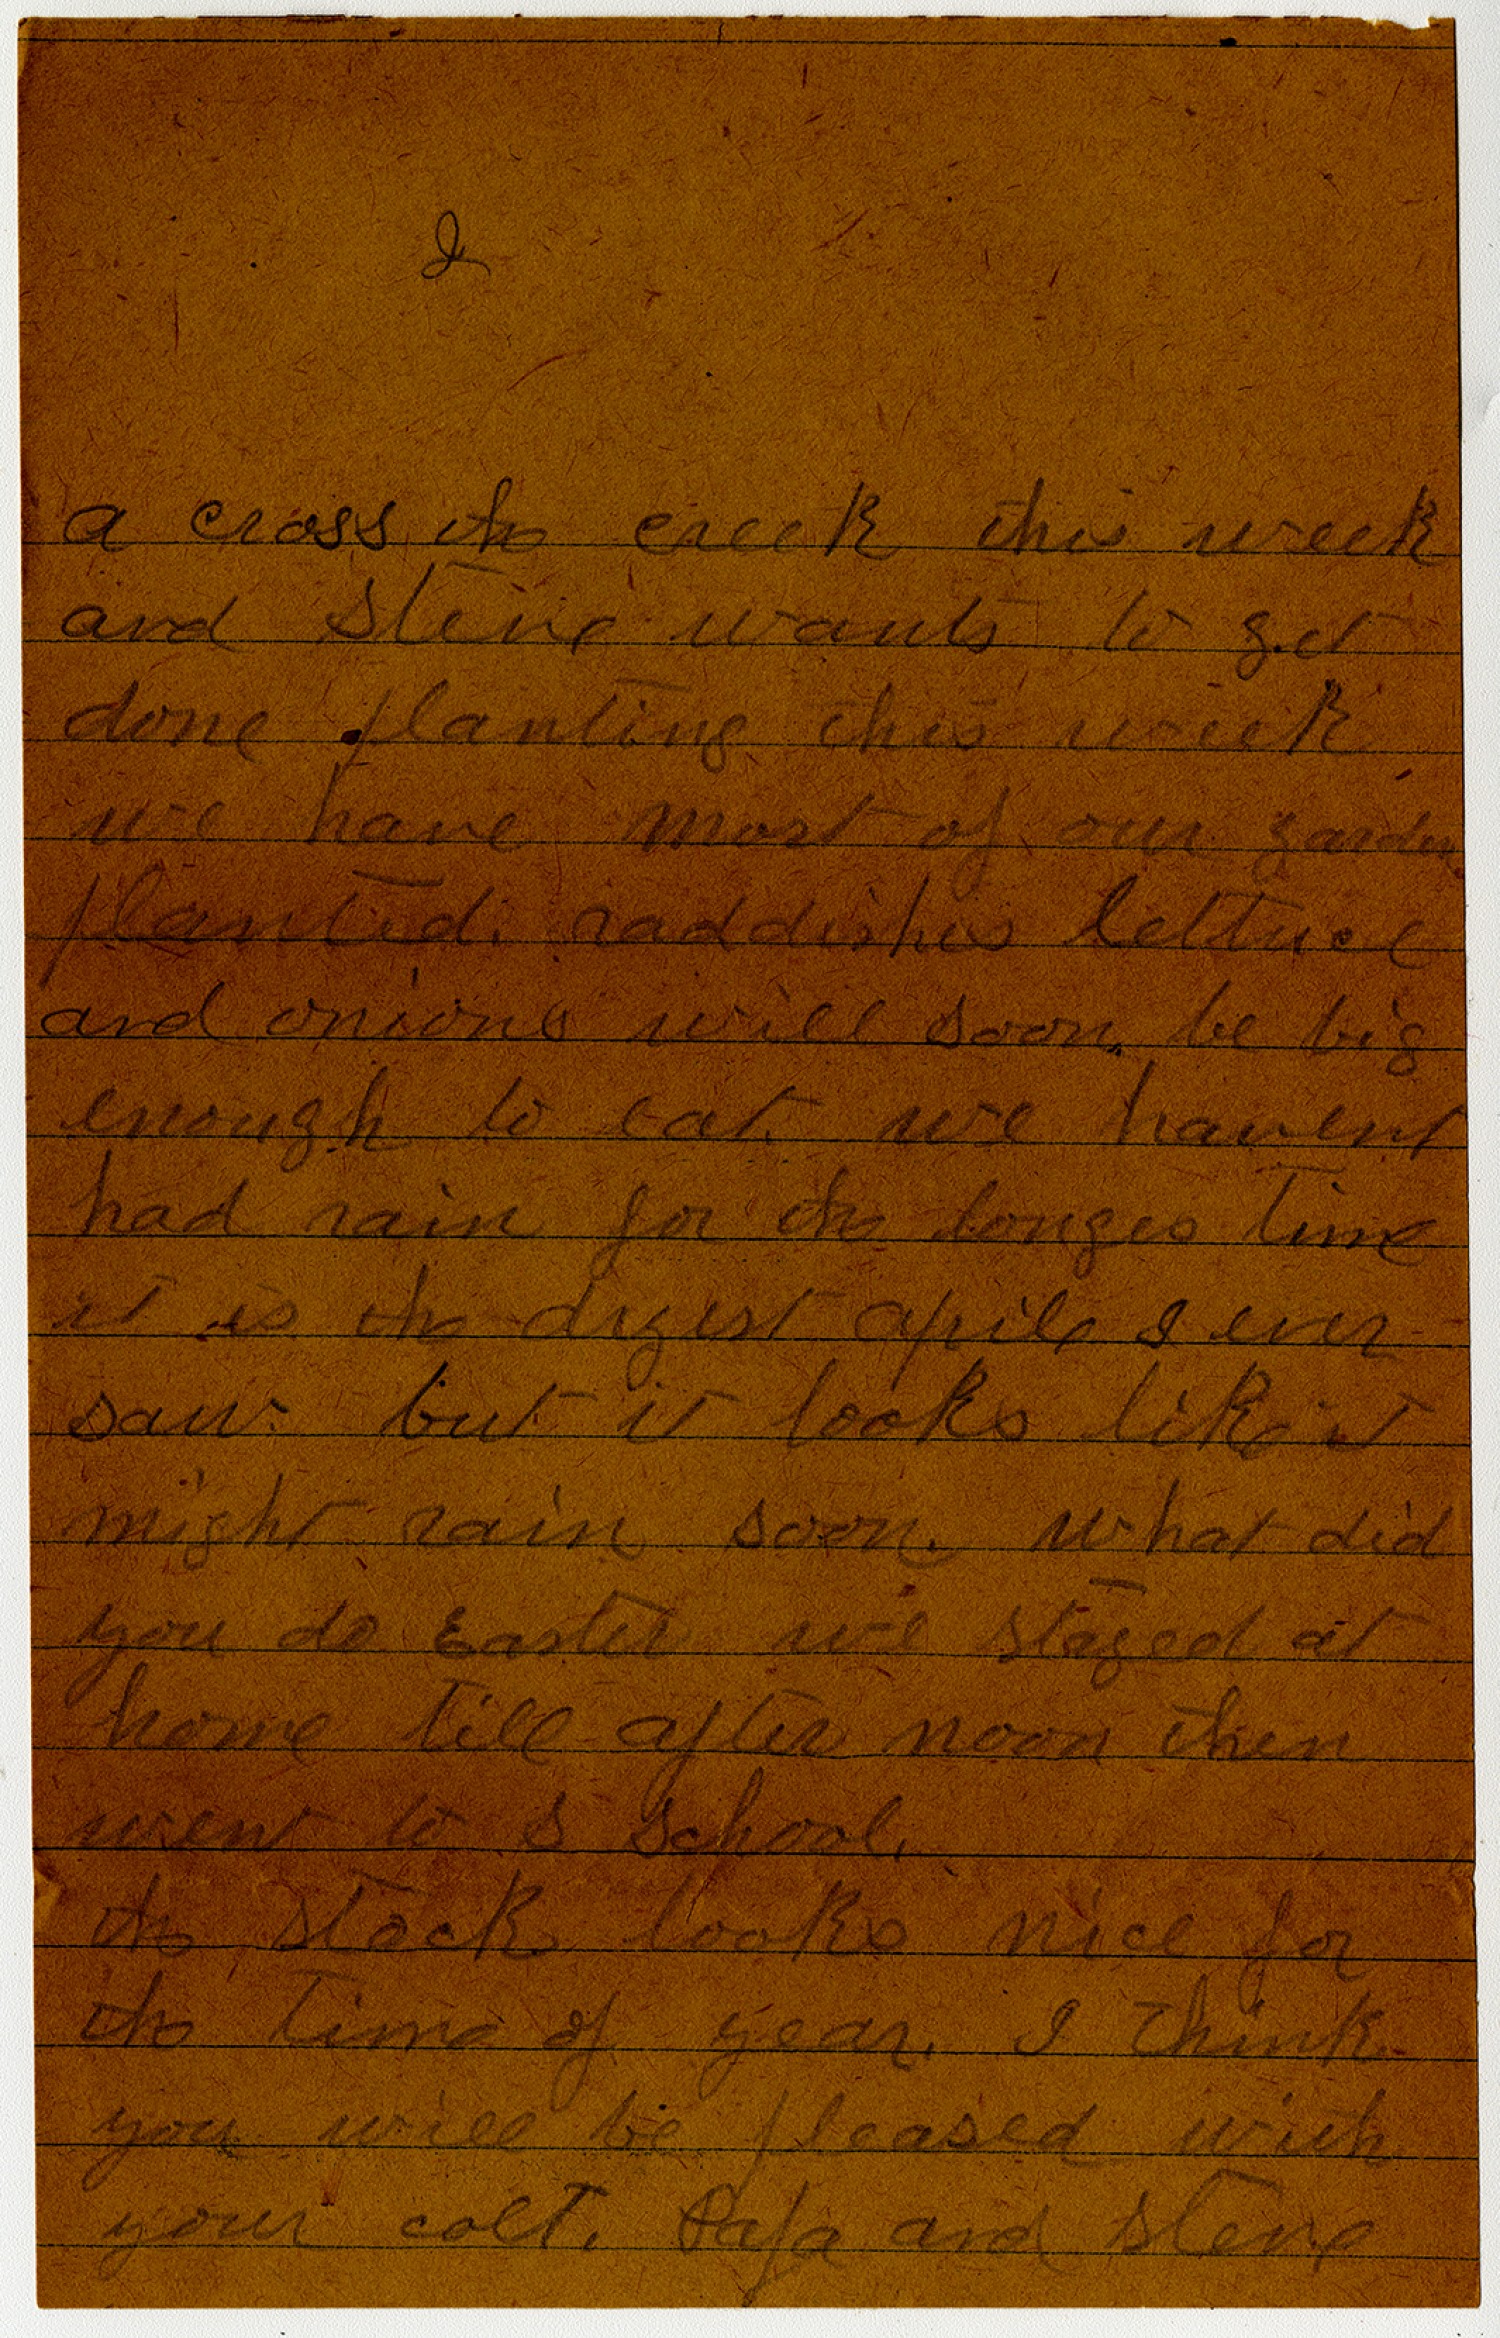 2
a cross the creek this week
and Steve wants to get
done planting this week
we have most of our garden
planted. raddishes lettuce
and onions will soon be big
enough to eat. we havent
had rain for the longes time
it is the dryest april I ever
saw. but it looks like it
might rain soon. what did
you do Easter we stayed at
home till after noon then
went to S School.
the stock looks nice for
the time of year. I think
you will be pleased with
your colt. Papa and Steve